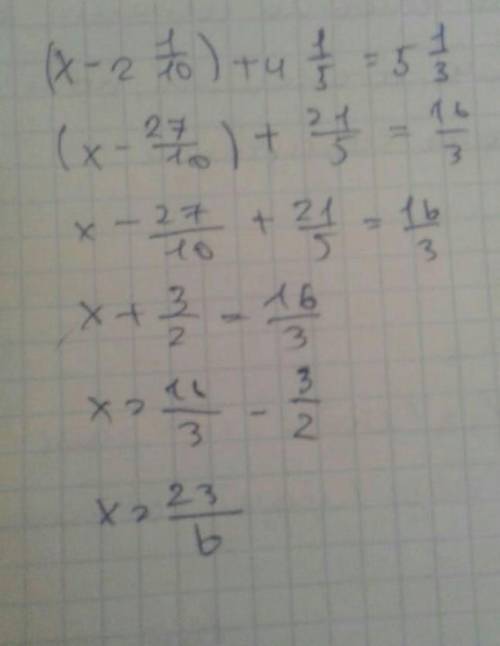 (x - 2 1/10) + 4 1/5 = 5 1/3
(x - 27/10) + 21/5 = 16/3
x - 27/10 + 21/5 = 16/3
x + 3/2 = 16/3
x = 16/3 - 3/2
x = 23/6